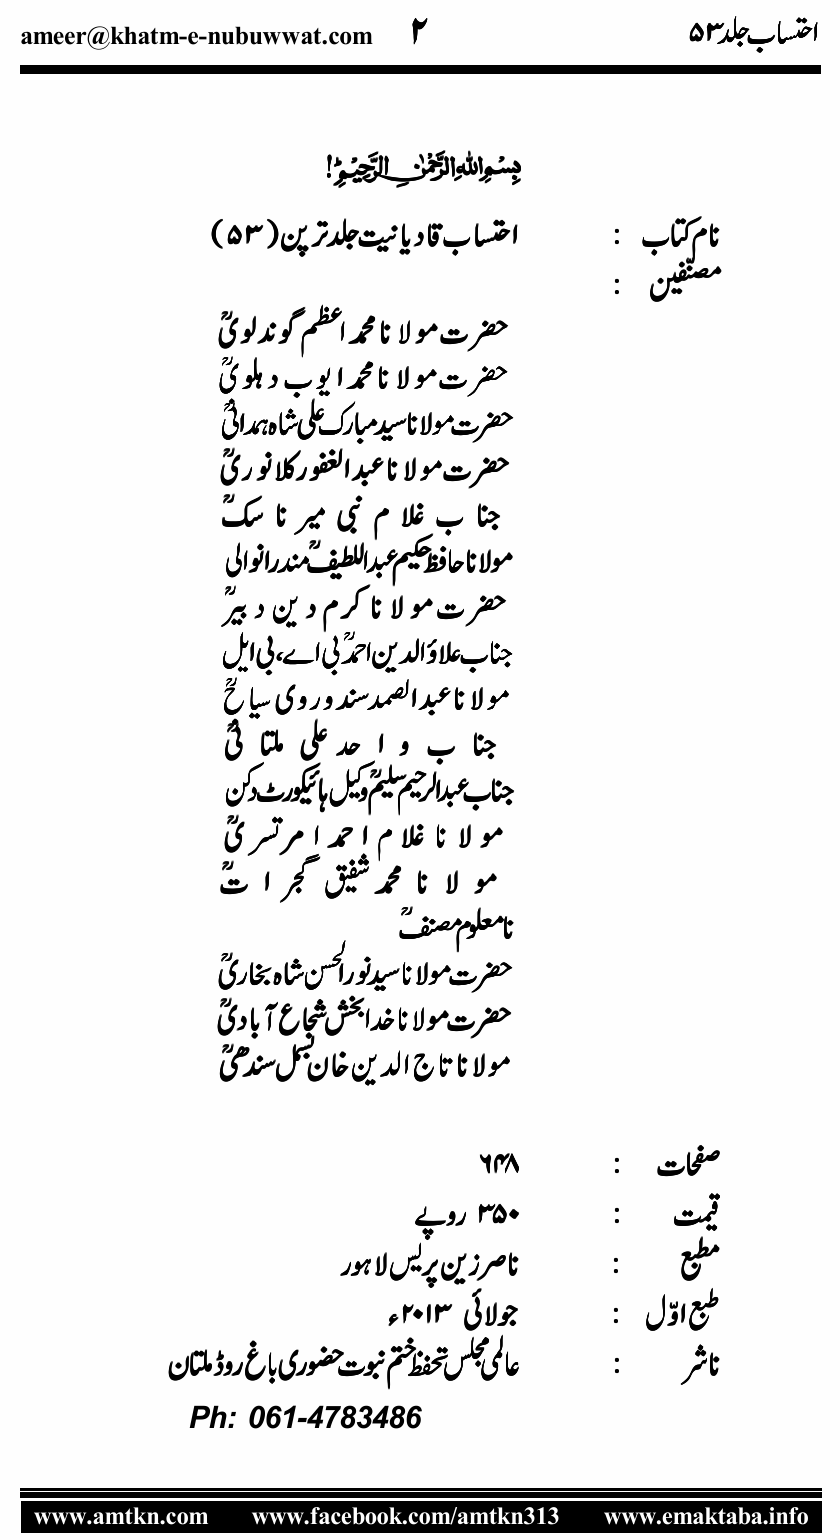 احتساب جلد ۵۳ ۲ ameer@khatm-e-nubuwwat.com
بِسْمِ اللهِ الرَّحْمٰنِ الرَّحِيْمِ!
نام کتاب : احتساب قادیانیت جلد ترپن (۵۳)
مصنّفین :
حضرت مولانا محمد اعظم گوندلویؒ
حضرت مولانا محمد ایوب دہلویؒ
حضرت مولانا سید مبارک علی شاہ ہمدانیؒ
حضرت مولانا عبدالغفور کلانوریؒ
جناب غلام نبی میر ناسکؒ
مولانا حافظ حکیم عبداللطیفؒ مندرانوالی
حضرت مولانا کرم دین دبیرؒ
جناب علاؤالدین احمدؒ بی اے، بی ایل
مولانا عبدالصمد سندوروی سیاحؒ
جناب واحد علی ملتانیؒ
جناب عبدالرحیم سلیمؒ وکیل ہائیکورٹ دکن
مولانا غلام احمد امرتسریؒ
مولانا محمد شفیق گجراتؒ
نامعلوم مصنفؒ
حضرت مولانا سید نورالحسن شاہ بخاریؒ
حضرت مولانا خدابخش شجاع آبادیؒ
مولانا تاج الدین خان بسمل سندھیؒ
صفحات : ۶۴۸
قیمت : ۳۵۰ روپے
مطبع : ناصر زین پریس لاہور
طبع اوّل : جولائی ۲۰۱۳ء
ناشر : عالمی مجلس تحفظ ختم نبوت حضوری باغ روڈ ملتان
Ph: 061-4783486
www.amtkn.com www.facebook.com/amtkn313 www.emaktaba.info